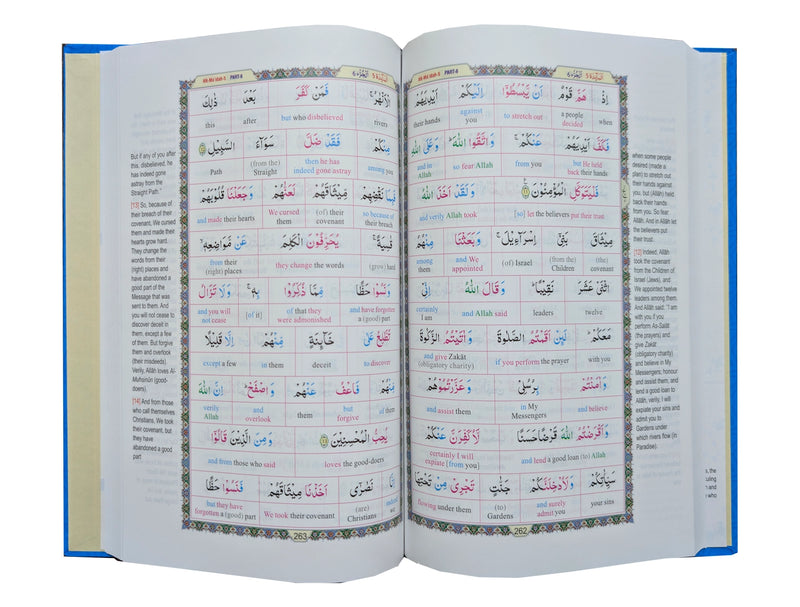 المآئدة ٥ الجزء ٦
PART-6
إِذْ هَمَّ قَوْمٌ أَنْ يَبْسُطُوٓا إِلَيْكُمْ أَيْدِيَهُمْ
when a people decided to stretch out against you their hands
فَكَفَّ أَيْدِيَهُمْ عَنْكُمْ ۚ وَاتَّقُوا اللّٰهَ ۗ وَعَلَى اللّٰهِ
but He held back their hands from you so fear Allah and in Allah
فَلْيَتَوَكَّلِ الْمُؤْمِنُوْنَ ۝١١ وَلَقَدْ أَخَذَ اللّٰهُ
[so] let the believers put their trust and verily Allah took
مِيْثَاقَ بَنِيْٓ إِسْرَآءِيْلَ ۚ وَبَعَثْنَا مِنْهُمُ
(the) covenant (from the) Children (of) Israel and We appointed among them
اثْنَيْ عَشَرَ نَقِيْبًا ۗ وَقَالَ اللّٰهُ إِنِّيْ
twelve leaders and Allah said certainly I am
مَعَكُمْ ۗ لَئِنْ أَقَمْتُمُ الصَّلٰوةَ وَاٰتَيْتُمُ الزَّكٰوةَ
with you if you perform the prayer and give Zakāt (obligatory charity)
وَاٰمَنْتُمْ بِرُسُلِيْ وَعَزَّرْتُمُوْهُمْ
and believe in My Messengers and assist them
وَأَقْرَضْتُمُ اللّٰهَ قَرْضًا حَسَنًا لَّأُكَفِّرَنَّ عَنْكُمْ
and lend a good loan (to) Allah certainly I will expiate [from you]
سَيِّاٰتِكُمْ وَلَأُدْخِلَنَّكُمْ جَنّٰتٍ تَجْرِيْ مِنْ تَحْتِهَا
your sins and surely admit you (to) Gardens flowing under them
262
when some people
desired (made a
plan) to stretch out
their hands against
you, but (Allāh) held
back their hands
from you. So fear
Allāh. And in Allāh let
the believers put
their trust.
[12] Indeed, Allāh
took the covenant
from the Children of
Israel (Jews), and
We appointed twelve
leaders among them.
And Allāh said: "I am
with you if you
perform As-Salāt
(the prayers) and
give Zakāt
(obligatory charity)
and believe in My
Messengers; honour
and assist them, and
lend a good loan to
Allāh, verily, I will
expiate your sins and
admit you to
Gardens under
which rivers flow (in
Paradise).
المآئدة ٥ الجزء ٦
PART-6
الْأَنْهٰرُ ۚ فَمَنْ كَفَرَ بَعْدَ ذٰلِكَ
rivers but who disbelieved after this
مِنْكُمْ فَقَدْ ضَلَّ سَوَآءَ السَّبِيْلِ ۝١٢
among you then he has indeed gone astray (from the) Straight Path
فَبِمَا نَقْضِهِمْ مِّيْثَاقَهُمْ لَعَنّٰهُمْ وَجَعَلْنَا قُلُوْبَهُمْ
so because of their breach (of) their covenant We cursed them and made their hearts
قٰسِيَةً ۚ يُحَرِّفُوْنَ الْكَلِمَ عَنْ مَّوَاضِعِهٖ ۙ
(grow) hard they change the words from their (right) places
وَنَسُوْا حَظًّا مِّمَّا ذُكِّرُوْا بِهٖ ۚ وَلَا تَزَالُ
and have forgotten a (good) part of that they were admonished (of it) and you will not cease
تَطَّلِعُ عَلٰى خَآئِنَةٍ مِّنْهُمْ إِلَّا قَلِيْلًا
to discover deceit in them except a few
مِّنْهُمْ فَاعْفُ عَنْهُمْ وَاصْفَحْ ۗ إِنَّ اللّٰهَ
of them but forgive them and overlook verily Allah
يُحِبُّ الْمُحْسِنِيْنَ ۝١٣ وَمِنَ الَّذِيْنَ قَالُوْٓا
loves the good-doers and from those who said
نَصٰرٰٓى أَخَذْنَا مِيْثَاقَهُمْ فَنَسُوْا حَظًّا
(are) Christians We took their covenant but they have forgotten a (good) part
263
But if any of you after
this, disbelieved, he
has indeed gone
astray from the
Straight Path."
[13] So, because of
their breach of their
covenant, We cursed
them and made their
hearts grow hard.
They change the
words from their
(right) places and
have abandoned a
good part of the
Message that was
sent to them. And
you will not cease to
discover deceit in
them, except a few of
them. But forgive
them and overlook
(their misdeeds).
Verily, Allāh loves Al-
Muhsinūn (good-
doers).
[14] And from those
who call themselves
Christians, We took
their covenant, but
they have
abandoned a good
part